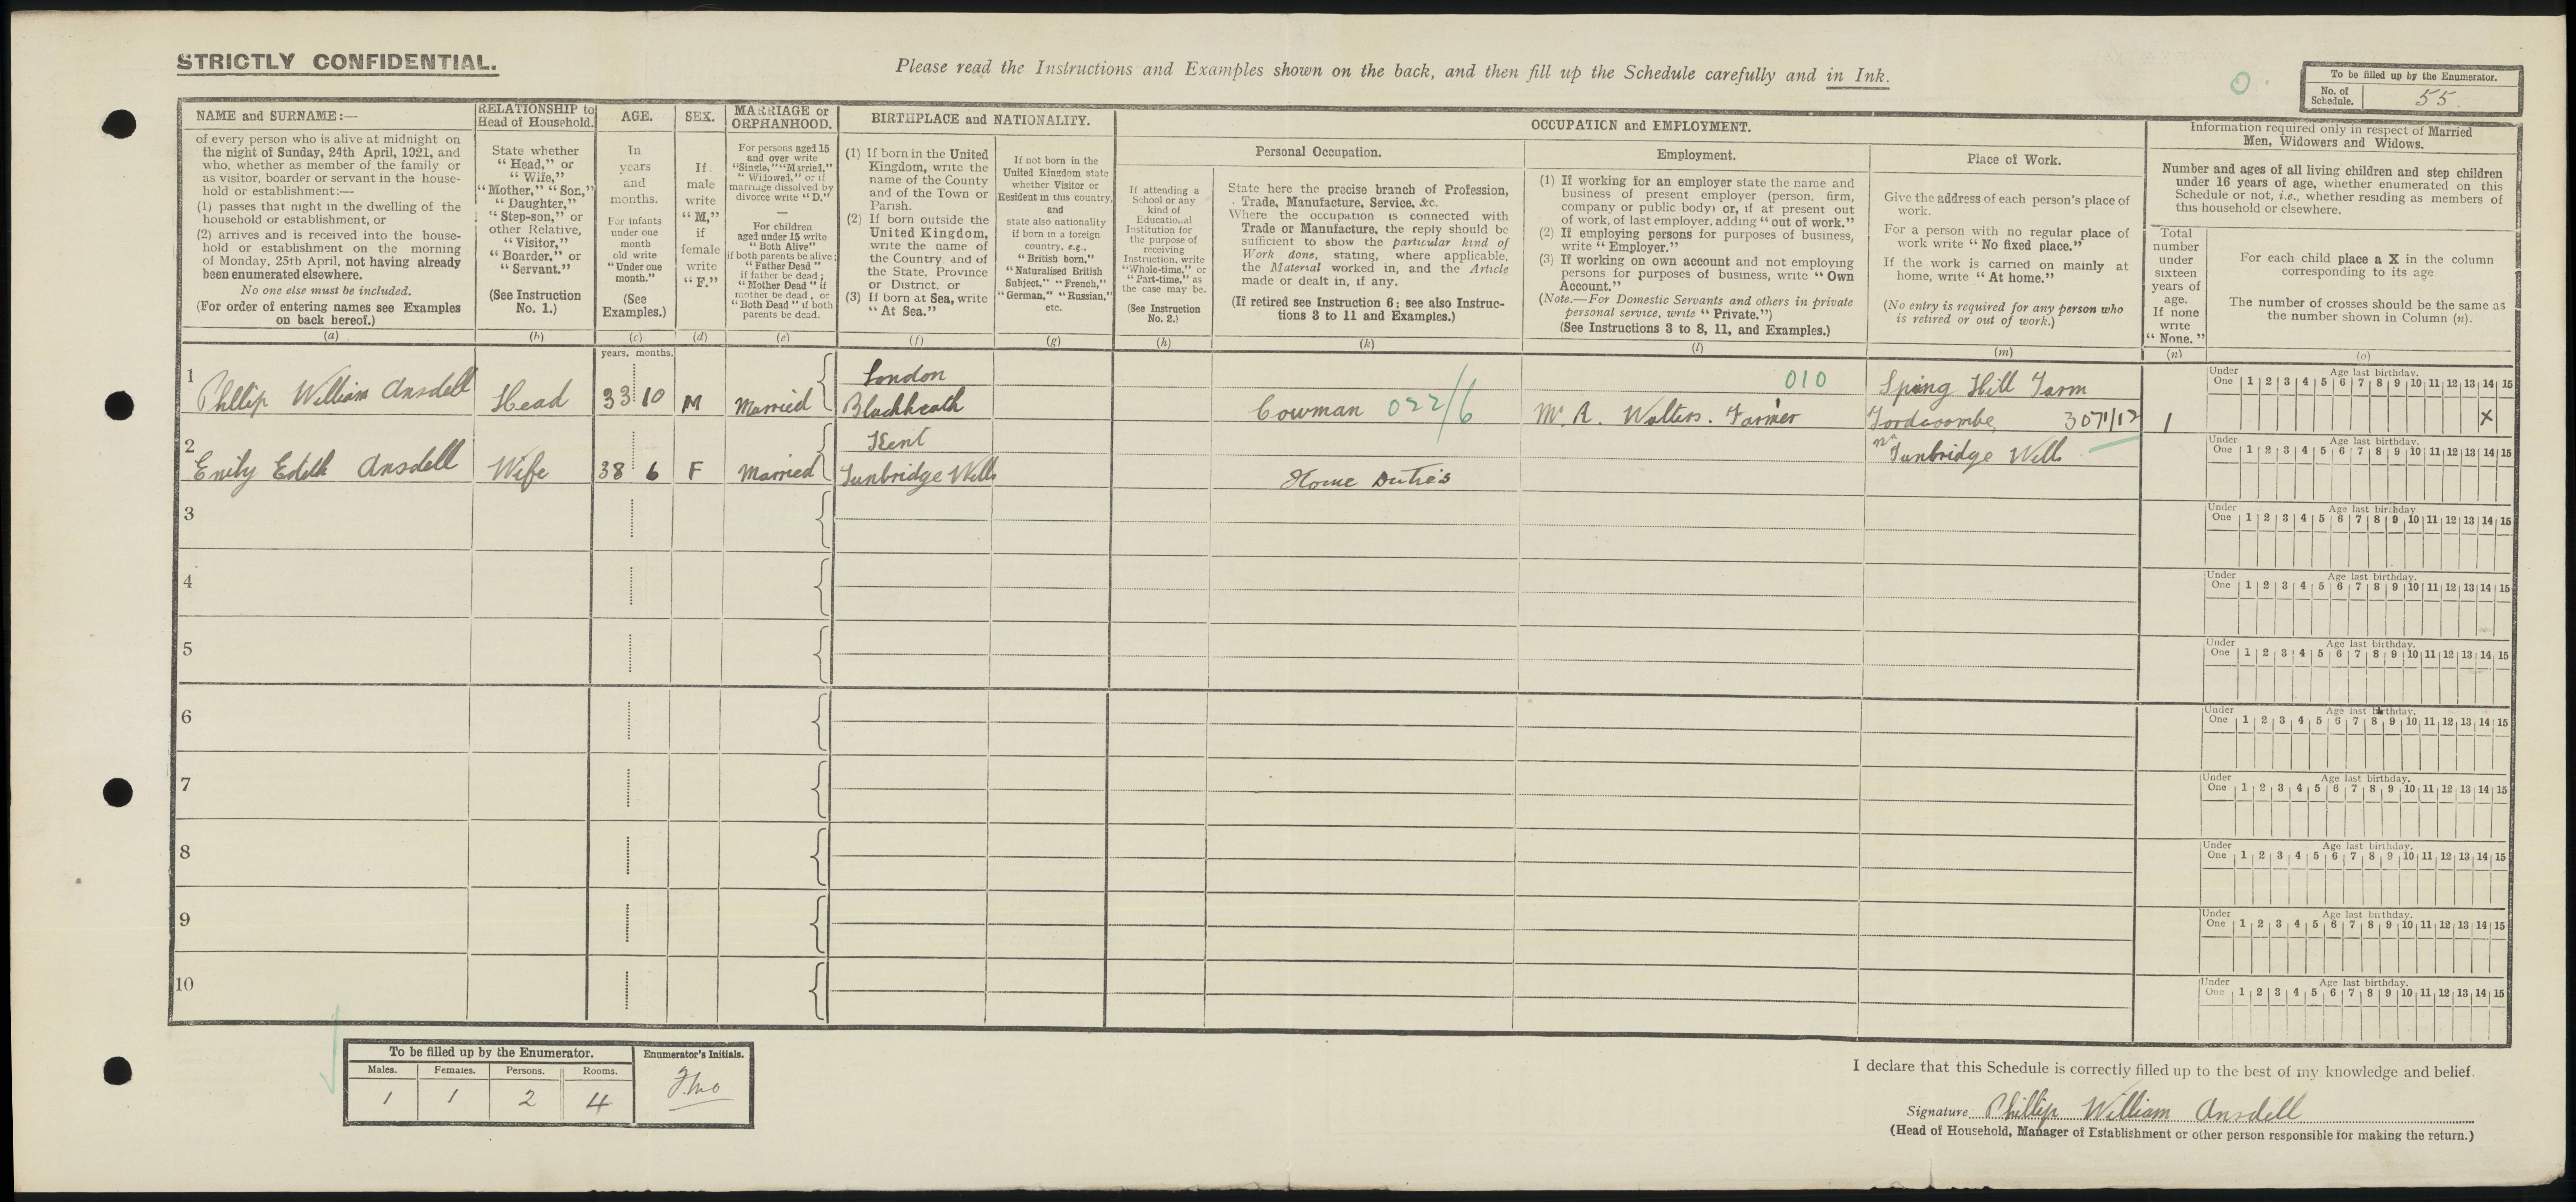 STRICTLY CONFIDENTIAL.
Please read the Instructions and Examples shown on the back, and then fill up the Schedule carefully and in Ink.
0
To be filled up by the Enumerator.
No. of Schedule. 55
NAME and SURNAME:—
of every person who is alive at midnight on
the night of Sunday, 24th April, 1921, and
who, whether as member of the family or
as visitor, boarder or servant in the house-
hold or establishment:—
(1) passes that night in the dwelling of the
household or establishment, or
(2) arrives and is received into the house-
hold or establishment on the morning
of Monday, 25th April, not having already
been enumerated elsewhere.
No one else must be included.
(For order of entering names see Examples
on back hereof.)
(a)
RELATIONSHIP to
Head of Household.
State whether
"Head," or
"Wife,"
"Mother," "Son,"
"Daughter,"
"Step-son," or
other Relative,
"Visitor,"
"Boarder," or
"Servant."
(See Instruction
No. 1.)
(b)
AGE.
In
years
and
months.
For infants
under one
month
old write
"Under one
month."
(See
Examples.)
(c)
SEX.
If
male
write
"M,"
if
female
write
"F."
(d)
MARRIAGE or
ORPHANHOOD.
For persons aged 15
and over write
"Single," "Married,"
"Widowed," or if
marriage dissolved by
divorce write "D."
—
For children
aged under 15 write
"Both Alive"
if both parents be alive;
"Father Dead"
if father be dead;
"Mother Dead" if
mother be dead, or
"Both Dead" if both
parents be dead.
(e)
BIRTHPLACE and NATIONALITY.
(1) If born in the United
Kingdom, write the
name of the County
and of the Town or
Parish.
(2) If born outside the
United Kingdom,
write the name of
the Country and of
the State, Province
or District, or
(3) If born at Sea, write
"At Sea."
(f)
If not born in the
United Kingdom state
whether Visitor or
Resident in this country,
and
state also nationality
if born in a foreign
country, e.g.,
"British born,"
"Naturalised British
Subject," "French,"
"German," "Russian,"
etc.
(g)
OCCUPATION and EMPLOYMENT.
If attending a
School or any
kind of
Educational
Institution for
the purpose of
receiving
Instruction, write
"Whole-time," or
"Part-time," as
the case may be.
(See Instruction
No. 2.)
(h)
Personal Occupation.
State here the precise branch of Profession,
Trade, Manufacture, Service, &c.
Where the occupation is connected with
Trade or Manufacture, the reply should be
sufficient to show the particular kind of
Work done, stating, where applicable,
the Material worked in, and the Article
made or dealt in, if any.
(If retired see Instruction 6; see also Instruc-
tions 3 to 11 and Examples.)
(k)
Employment.
(1) If working for an employer state the name and
business of present employer (person, firm,
company or public body) or, if at present out
of work, of last employer, adding "out of work."
(2) If employing persons for purposes of business,
write "Employer."
(3) If working on own account and not employing
persons for purposes of business, write "Own
Account."
(Note.—For Domestic Servants and others in private
personal service, write "Private.")
(See Instructions 3 to 8, 11, and Examples.)
(l)
Place of Work.
Give the address of each person's place of
work.
For a person with no regular place of
work write "No fixed place."
If the work is carried on mainly at
home, write "At home."
(No entry is required for any person who
is retired or out of work.)
(m)
Information required only in respect of Married
Men, Widowers and Widows.
Number and ages of all living children and step children
under 16 years of age, whether enumerated on this
Schedule or not, i.e., whether residing as members of
this household or elsewhere.
Total
number
under
sixteen
years of
age.
If none
write
"None."
(n)
For each child place a X in the column
corresponding to its age
The number of crosses should be the same as
the number shown in Column (n).
(o)
years. months.
1 Phillip William Ansdell Head 33 10 M Married London Blackheath Cowman 022/6 Mr. R. Walters. Farmer 010 Sping Hill Farm
Fordcoombe, 3071/12 1
nr Tunbridge Wells
Under One 1 2 3 4 5 6 7 8 9 10 11 12 13 14 15
Age last birthday.
X
2 Emily Edith Ansdell Wife 38 6 F Married Kent Tunbridge Wells Home Duties
Under One 1 2 3 4 5 6 7 8 9 10 11 12 13 14 15
Age last birthday.
3
Under One 1 2 3 4 5 6 7 8 9 10 11 12 13 14 15
Age last birthday.
4
Under One 1 2 3 4 5 6 7 8 9 10 11 12 13 14 15
Age last birthday.
5
Under One 1 2 3 4 5 6 7 8 9 10 11 12 13 14 15
Age last birthday.
6
Under One 1 2 3 4 5 6 7 8 9 10 11 12 13 14 15
Age last birthday.
7
Under One 1 2 3 4 5 6 7 8 9 10 11 12 13 14 15
Age last birthday.
8
Under One 1 2 3 4 5 6 7 8 9 10 11 12 13 14 15
Age last birthday.
9
Under One 1 2 3 4 5 6 7 8 9 10 11 12 13 14 15
Age last birthday.
10
Under One 1 2 3 4 5 6 7 8 9 10 11 12 13 14 15
Age last birthday.
To be filled up by the Enumerator.
Males. Females. Persons. Rooms.
1 1 2 4
Enumerator's Initials.
I declare that this Schedule is correctly filled up to the best of my knowledge and belief.
Signature Phillip William Ansdell
(Head of Household, Manager of Establishment or other person responsible for making the return.)